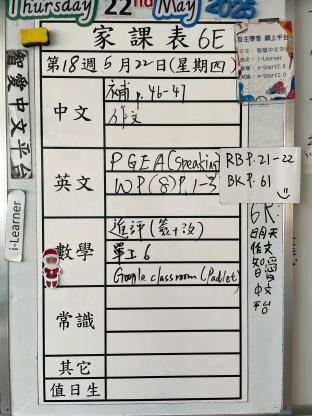 Thursday 22nd May 2025
家課表 6E
第18週 5月22日(星期四)
自主學習 網上平台
中文：智愛中文平台
i-Learner
智愛中文平台
i-Learner
中文
補 p.46-47
作文
英文
PGEA (Speaking)
WP(8)P.1-3
RB P.21-22
BK P.61
數學
進評(簽+改)
單工6
Google classroom (Padlet)
常識
其它
值日生
6R:
明天
作文
智愛
中文
平台